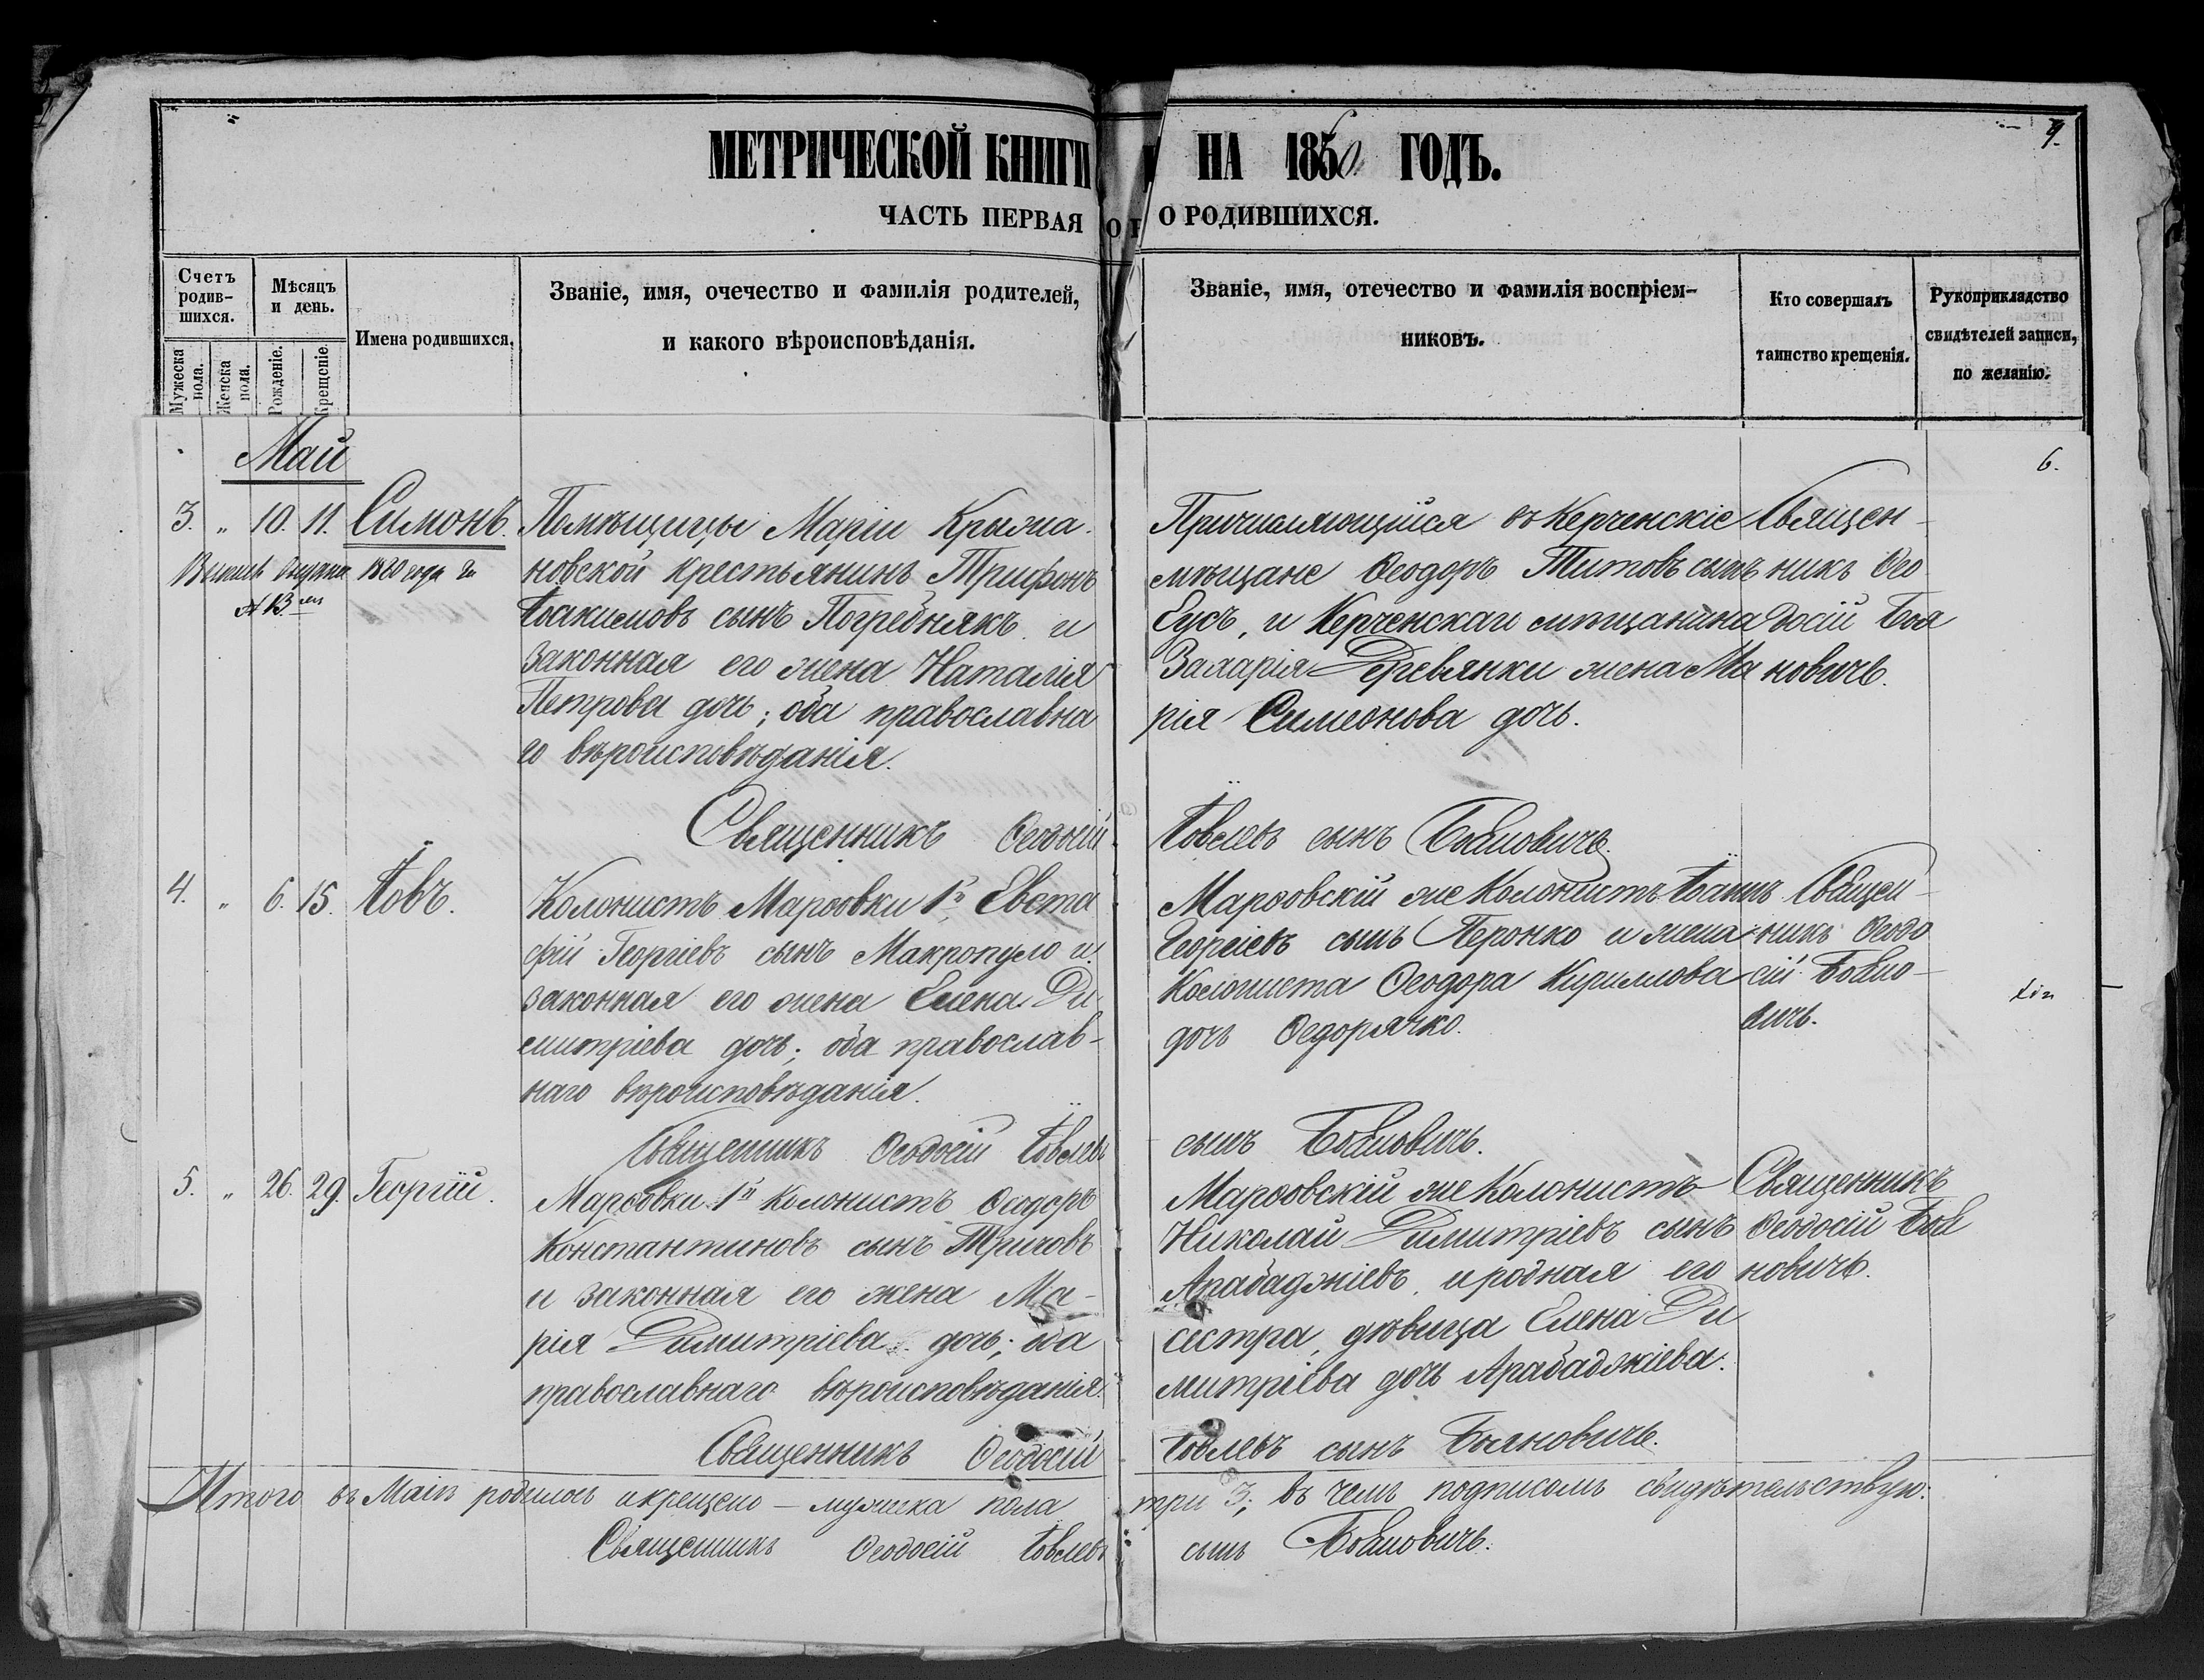 МЕТРИЧЕСКОЙ КНИГИ НА 1860 ГОДЪ.
9.
ЧАСТЬ ПЕРВАЯ О РОДИВШИХСЯ.
Счетъ родив-
шихся.
Мужеска пола.
Женска пола.
Мѣсяцъ и день.
Рожденіе.
Крещеніе.
Имена родившихся.
Званіе, имя, очечество и фамилія родителей,
и какого вѣроисповѣданія.
Званіе, имя, отечество и фамилія воспріем-
никовъ.
Кто совершалъ
таинство крещенія.
Рукоприкладство
свидѣтелей записи,
по желанію.
Май
6.
3. „ 10. 11. Симонъ.
1880 года
Помѣщицы Маріи Крыжа
новской крестьянинъ Трифонъ
Іоакимовъ сынъ Погреднякъ и
законная его жена Наталія
Петрова дочь; оба православна
го вѣроисповѣданія.
Причисляющійся въ Керченскіе
мѣщане Ѳеодоръ Титовъ сынъ
Гусъ, и Керченскаго мѣщанина
Захарія Деревянки жена Ма
рія Симеонова дочь.
Священ-
никъ Ѳео
досій Боя
новичъ.
Священникъ Ѳеодосій Іовлевъ сынъ Бояновичъ.
4. „ 6. 15. Іовъ.
Колонистъ Марѳовки 1й Евста
фій Георгіевъ сынъ Макропуло и
законная его жена Елена Ди
митріева дочь; оба православ-
наго вѣроисповѣданія.
Марѳовскій же Колонистъ Іоаннъ
Георгіевъ сынъ Перонко и жена
Колониста Ѳеодора Кириллова
дочь Ѳедорячко.
Священ-
никъ Ѳеодо
сій Бояно-
вичъ.
Священникъ Ѳеодосій Іовлевъ сынъ Бояновичъ.
5. „ 26. 29. Георгій.
Марѳовки 1й Колонистъ Ѳеодоръ
Константиновъ сынъ Тричовъ
и законная его жена Ма-
рія Димитріева дочь; оба
православнаго вѣроисповѣданія.
Марѳовскій же Колонистъ
Николай Димитріевъ сынъ
Арабаджіевъ, и родная его
сестра, дѣвица Елена Ди
митріева дочь Арабаджіева.
Священникъ
Ѳеодосій Боя
новичъ.
Священникъ Ѳеодосій Іовлевъ сынъ Бояновичъ.
Итого въ Маіѣ родилось и крещено — мужеска пола три 3; въ чемъ подписомъ свидѣтельствую:
Священникъ Ѳеодосій Іовлевъ сынъ Бояновичъ.